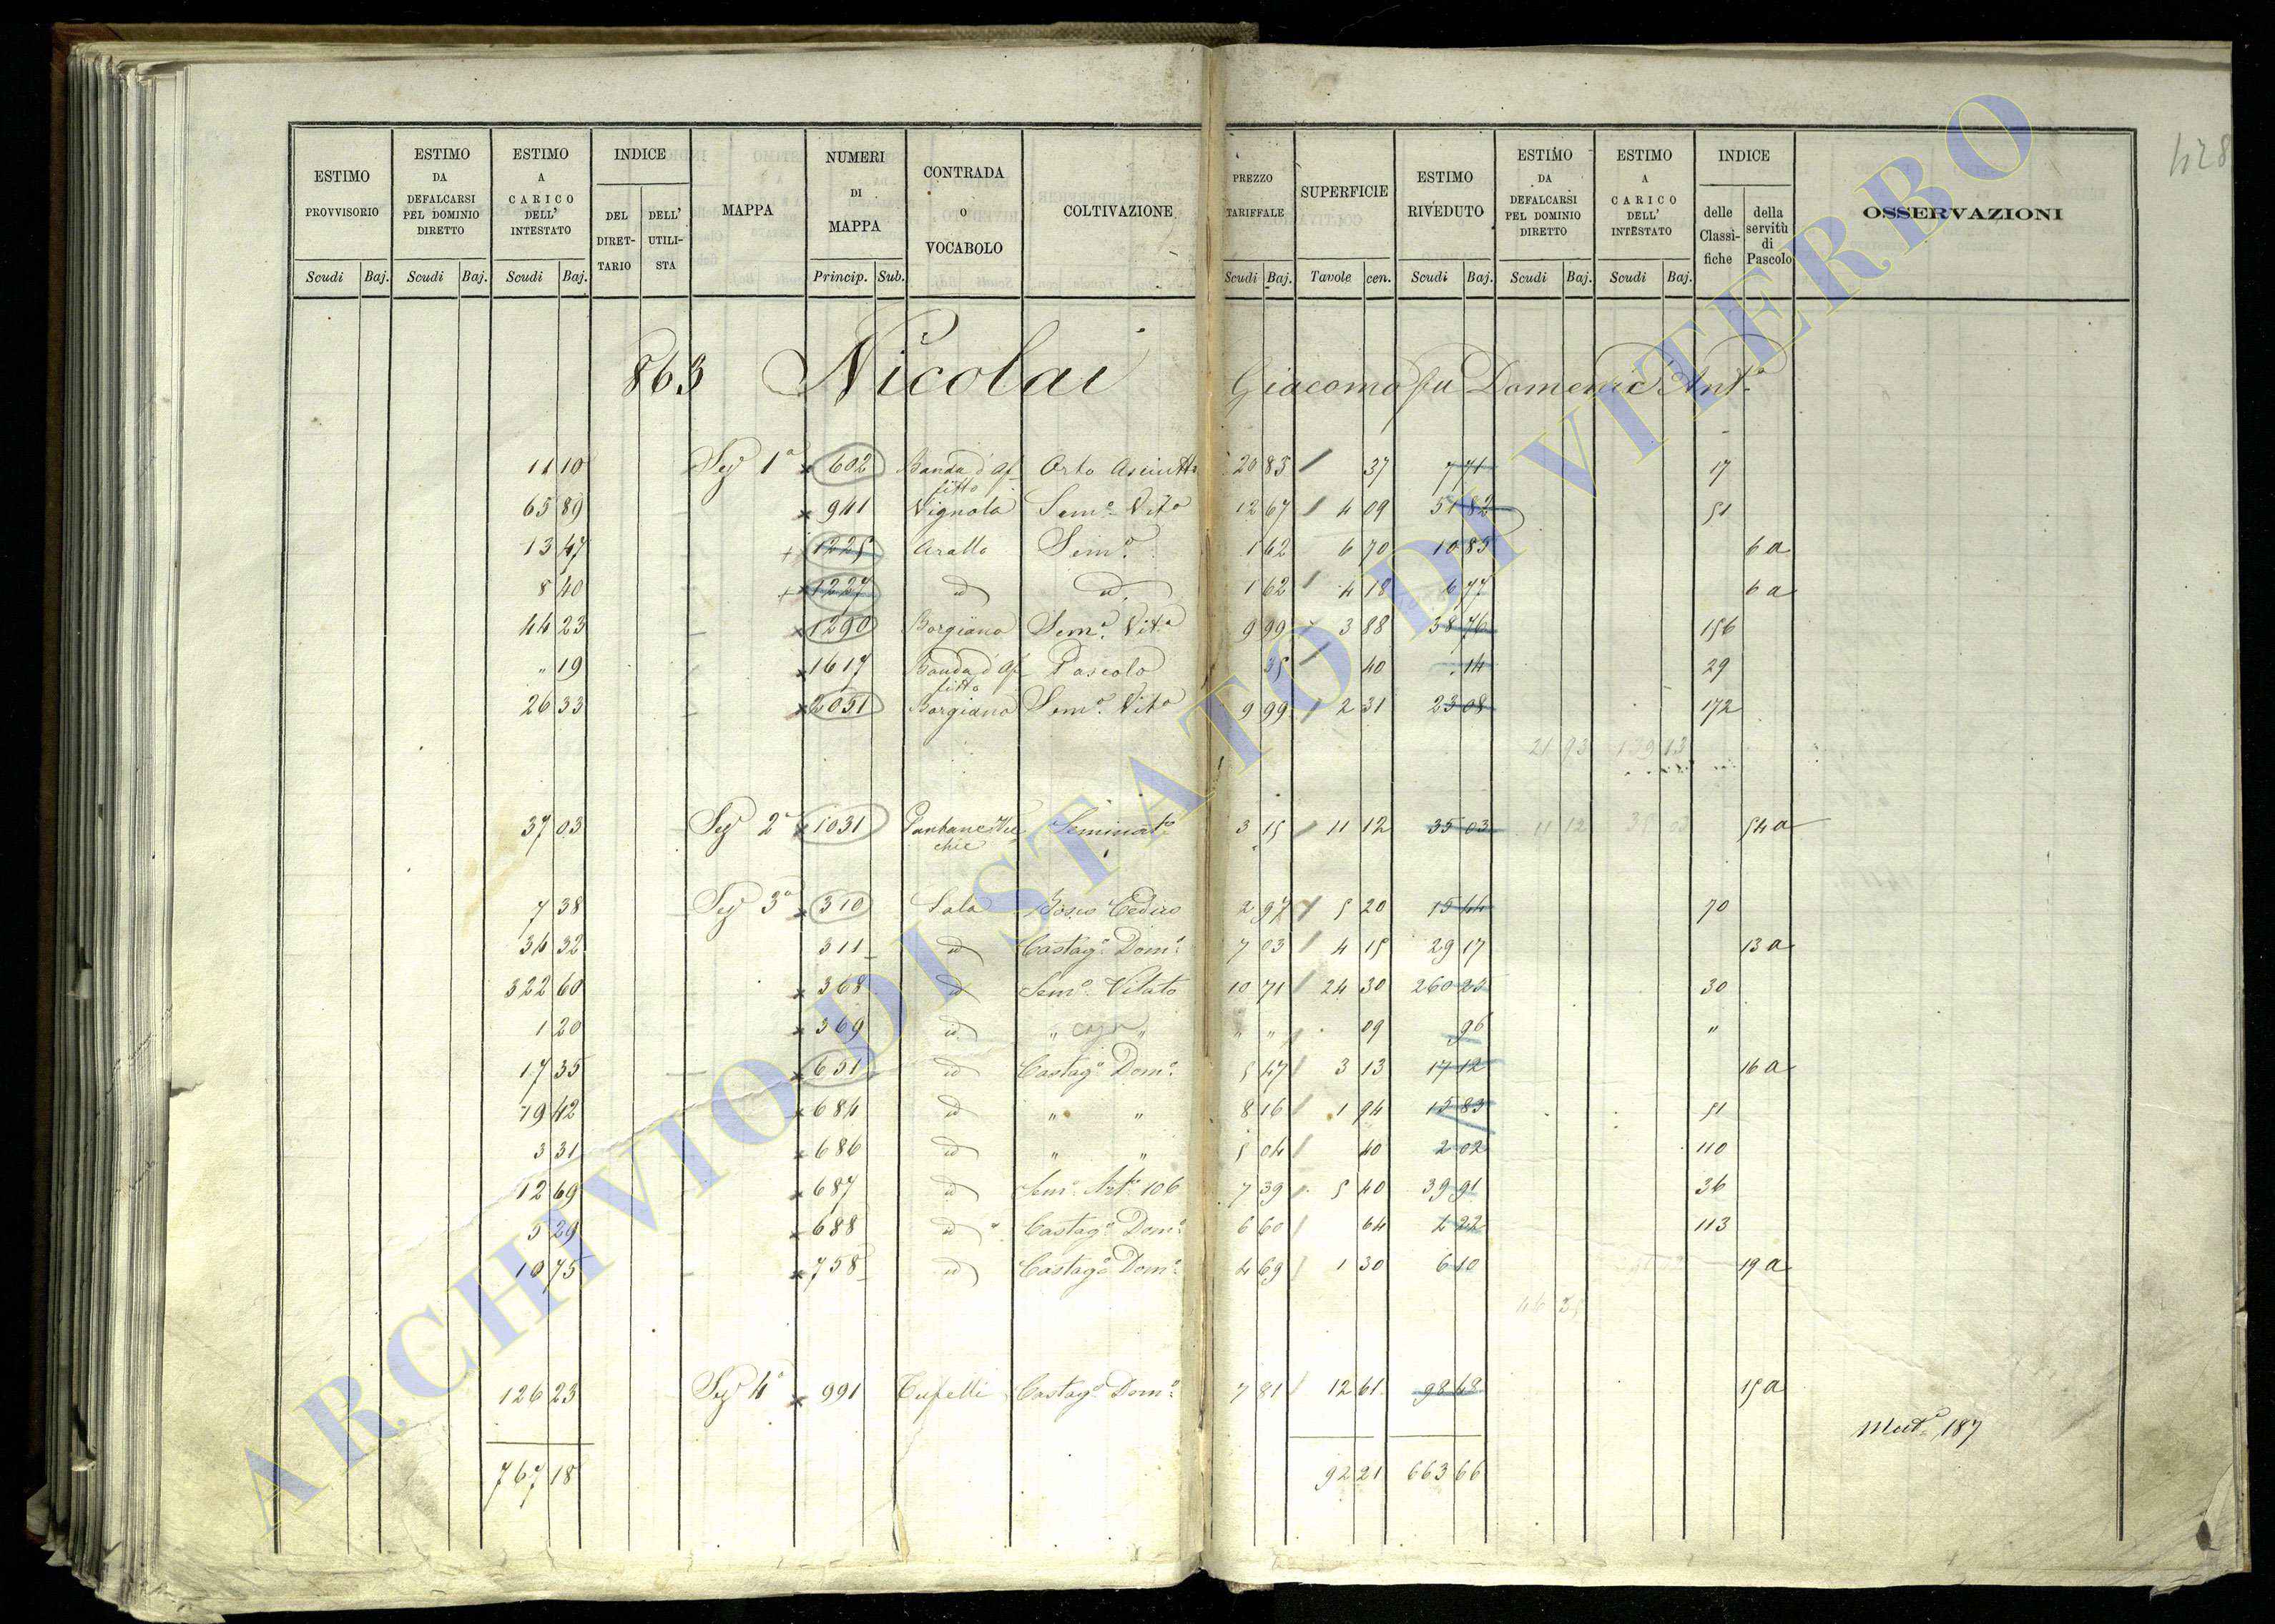 428
ESTIMO PROVVISORIO Scudi Baj.
ESTIMO DA DEFALCARSI PEL DOMINIO DIRETTO Scudi Baj.
ESTIMO A CARICO DELL' INTESTATO Scudi Baj.
INDICE DEL DIRETTARIO DELL' UTILISTA
MAPPA
NUMERI DI MAPPA Princip. Sub.
CONTRADA O VOCABOLO
COLTIVAZIONE
PREZZO TARIFFALE Scudi Baj.
SUPERFICIE Tavole cen.
ESTIMO RIVEDUTO Scudi Baj.
ESTIMO DA DEFALCARSI PEL DOMINIO DIRETTO Scudi Baj.
ESTIMO A CARICO DELL' INTESTATO Scudi Baj.
INDICE delle Classifiche della servitù di Pascolo
OSSERVAZIONI
863 Nicolai Giacomo fu Domenic Ant.o
11 10 Sez 1a 602 Banda d'Affitto Orto Asciutto 20 83 37 7 71 17
65 89 941 Vignola Sem.o Vit.o 12 67 4 09 51 82 51
13 47 1225 Aralla Sem.o 1 62 6 70 10 85 6 a
8 40 1227 id id 1 62 4 18 6 77 6 a
44 23 1290 Borgiano Sem.o Vit.o 9 99 3 88 38 76 156
" 19 1617 Banda d'Affitto Pascolo 35 40 14 29
26 33 2051 Borgiano Sem.o Vit.o 9 99 2 31 23 08 172
21 93 139 13
37 03 Sez 2a 1031 Seminat.o 3 15 11 12 35 03 11 12 35 03 54 a
7 38 Sez 3a 310 Sala Bosco Ceduo 2 97 5 20 15 44 70
34 32 311 id Castag.o Dom.o 7 03 4 15 29 17 13 a
322 60 368 id Sem.o Vitato 10 71 24 30 260 25 30
1 20 369 id " " " " 09 96 "
17 35 651 id Castag.o Dom.o 5 47 3 13 17 12 16 a
19 42 684 id " " 8 16 1 94 15 83 51
3 31 686 id " " 5 04 40 2 02 110
12 69 687 id Sem.o 106 7 39 5 40 39 91 36
5 29 688 id Castag.o Dom.o 6 60 64 4 22 113
10 75 758 id Castag.o Dom.o 4 69 1 30 6 10 19 a
126 23 Sez 4a 991 Cupelli Castag.o Dom.o 7 81 12 61 98 48 15 a
187
767 18 92 21 663 66
ARCHIVIO DI STATO DI VITERBO